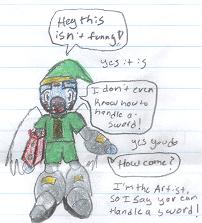 Hey this
isn't funny!
yes it is
I don't even
know how to
handle a
sword!
yes you do
How come?
I'm the Artist,
So I say you can
Handle a sword!